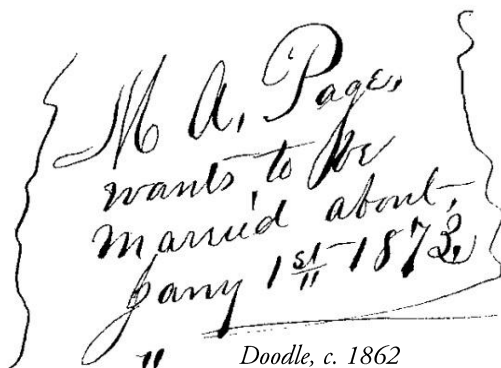 M A, Page,
wants to be
married about,
Jany 1st 1873,
"
Doodle, c. 1862